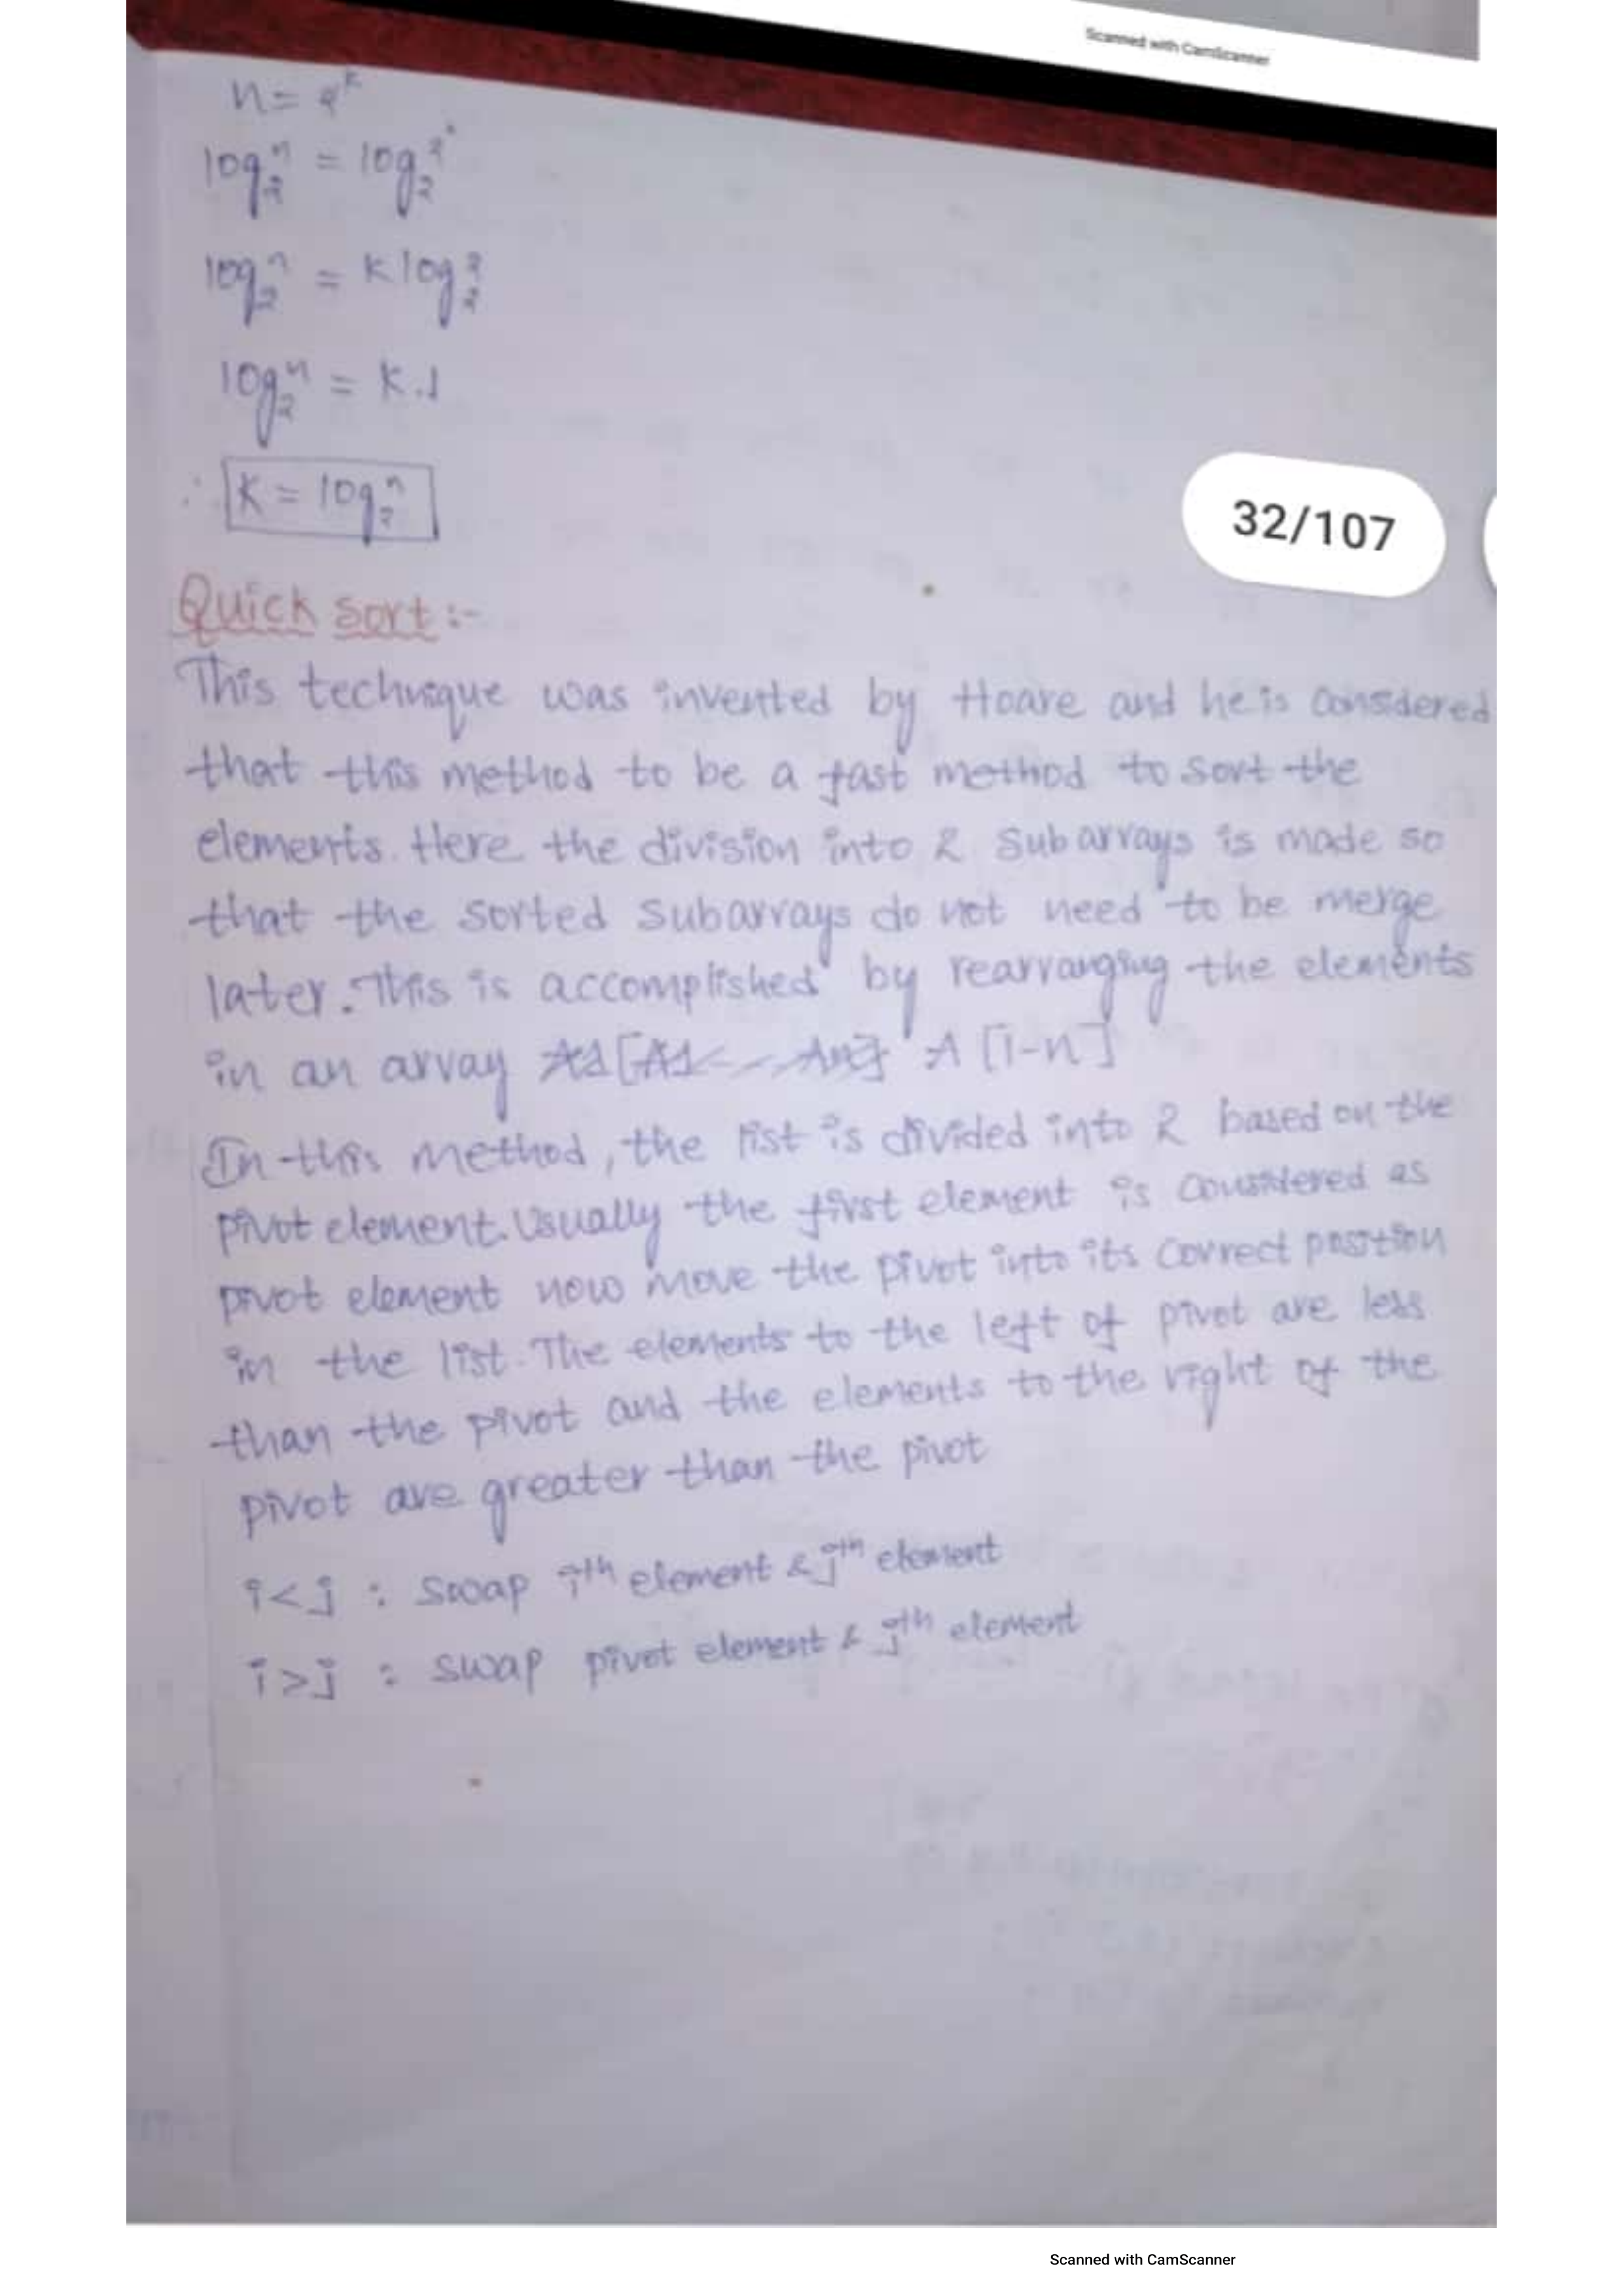 Scanned with CamScanner
n = 2^k
log₂ⁿ = log₂2^k
log₂ⁿ = K log₂²
log₂ⁿ = K.1
∴ K = log₂ⁿ
32/107
Quick sort :-
This technique was invented by Hoare and he is considered
that this method to be a fast method to sort the
elements. Here the division into 2 subarrays is made so
that the sorted subarrays do not need to be merge
later. This is accomplished by rearranging the elements
in an array A [1-n]
In this method, the list is divided into 2 based on the
pivot element. Usually the first element is considered as
pivot element now move the pivot into its correct position
in the list. The elements to the left of pivot are less
than the pivot and the elements to the right of the
pivot are greater than the pivot
i<j : swap iᵗʰ element & jᵗʰ element
i≥j : swap pivot element & jᵗʰ element
Scanned with CamScanner